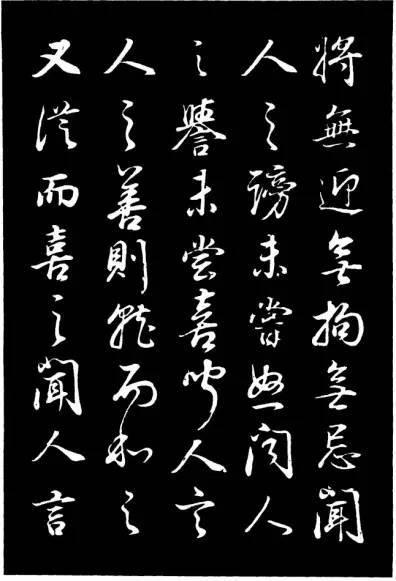 將無迎無拘無忌聞
人之謗未嘗怒聞人
之譽未嘗喜聞人言
人之善則就而和之
又從而喜之聞人言